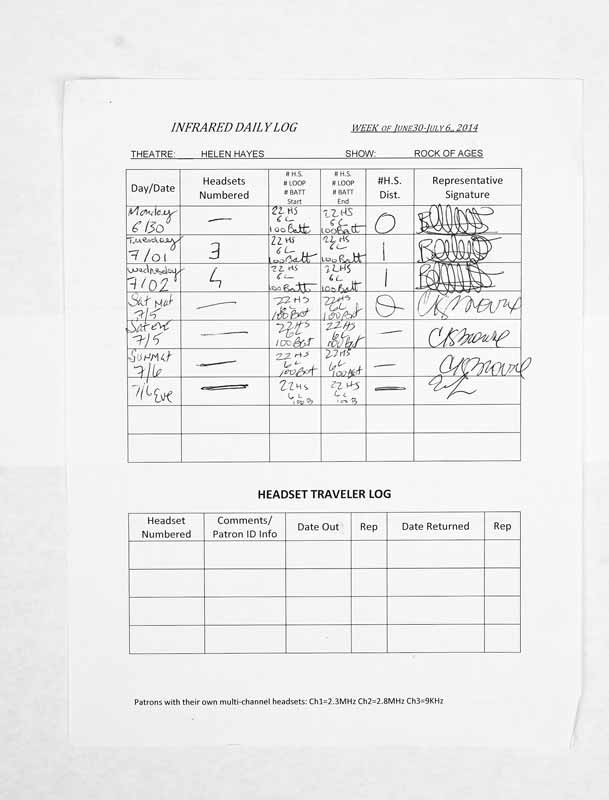 INFRARED DAILY LOG WEEK OF JUNE30-JULY 6, 2014
THEATRE: HELEN HAYES SHOW: ROCK OF AGES
Day/Date
Headsets
Numbered
# H.S.
# LOOP
# BATT
Start
# H.S.
# LOOP
# BATT
End
#H.S.
Dist.
Representative
Signature
Monday
6/30
—
22 HS
6L
100Batt
22 HS
6L
100Batt
0
Tuesday
7/01
3
22HS
6L
100Batt
22HS
6L
100Batt
1
Wednesday
7/02
4
22HS
6L
100Batt
22HS
6L
100Batt
1
Sat Mat
7/5
—
22HS
6L
100Bat
22HS
6L
100Bat
0
Sat Eve
7/5
—
22HS
6L
100Bat
22HS
6L
100Bat
—
Sun Mat
7/6
—
22HS
6L
100Bat
22HS
6L
100Bat
—
7/6
Eve
—
22HS
6L
100B
22HS
6L
100B
—
HEADSET TRAVELER LOG
Headset
Numbered
Comments/
Patron ID Info
Date Out
Rep
Date Returned
Rep
Patrons with their own multi-channel headsets: Ch1=2.3MHz Ch2=2.8MHz Ch3=9KHz